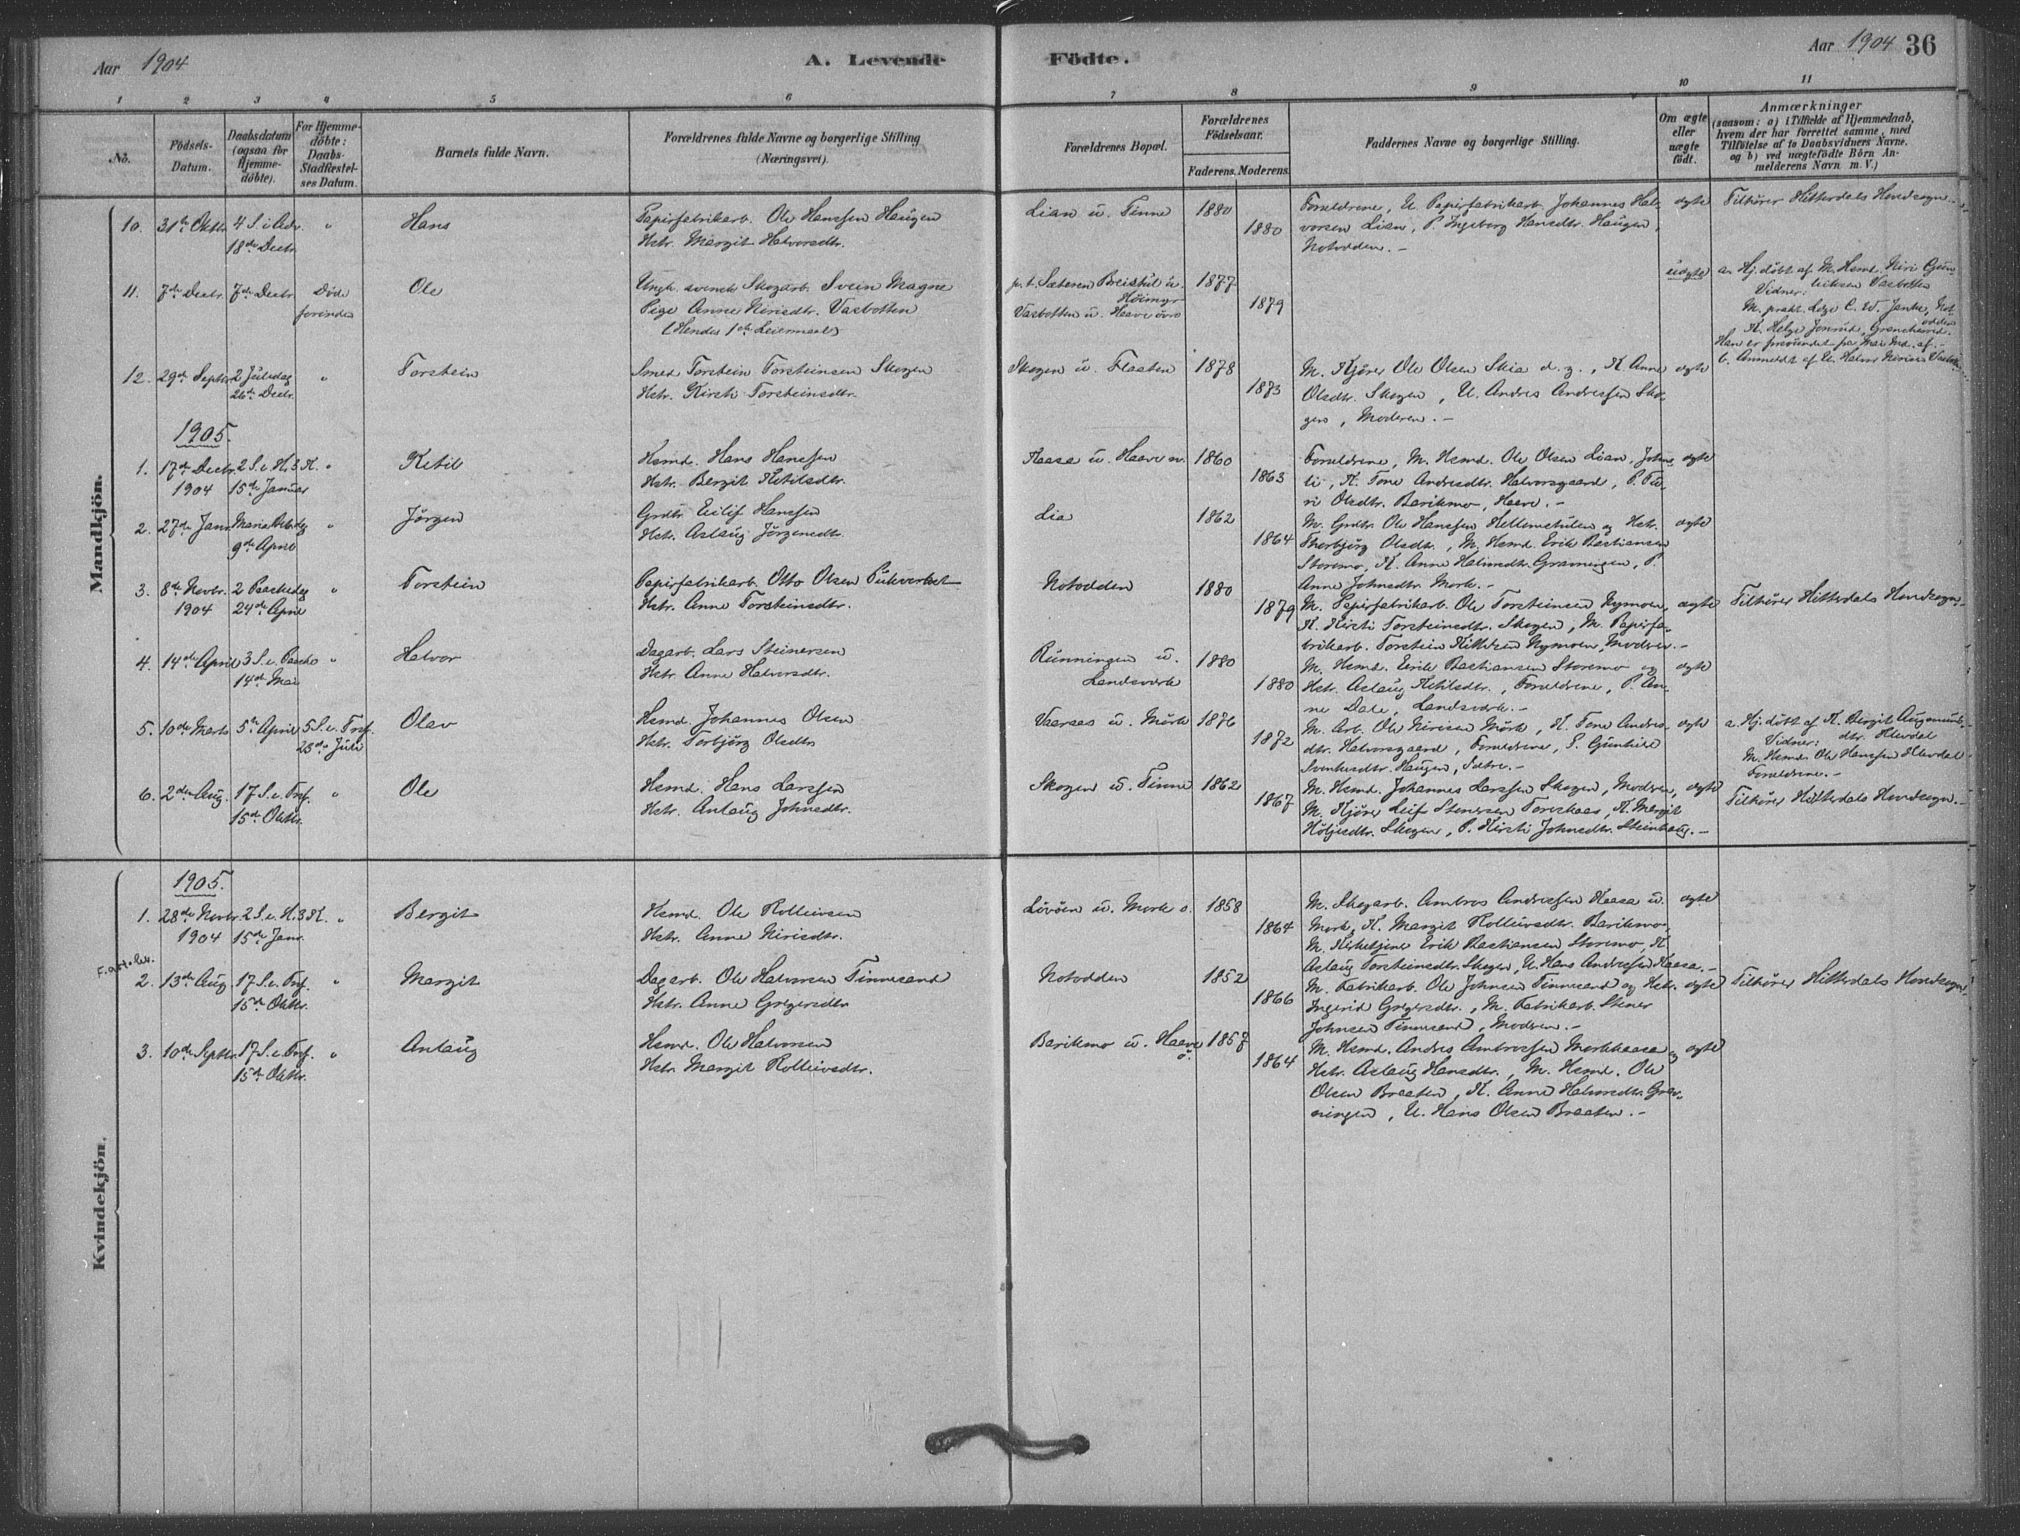 Aar 1904
A. Levende
Födte.
Aar 1904
36
1 2 3 4 5 6 7 8 9 10 11
No.
Födsels-
Datum.
Daabsdatum
(ogsaa for
Hjemme-
döbte).
For Hjemme-
döbte:
Daabs-
Stadfæstel-
ses Datum.
Barnets fulde Navn.
Forældrenes fulde Navne og borgerlige Stilling
(Næringsvei).
Forældrenes Bopæl.
Forældrenes
Födselsaar.
Faderens. Moderens.
Faddernes Navne og borgerlige Stilling.
Om ægte
eller
uægte
födt.
Anmærkninger
(saasom: a) i Tilfælde af Hjemmedaab,
hvem der har forrettet samme, med
Tilföielse af to Daabsvidners Navne.
og b) ved uægtefödte Börn An-
melderens Navn m. V.)
Mandkjön.
10. 31te Oktbr. 4 S. i Adv. " Hans
18de Decbr.
Papirfabrikarb. Ole Hanssen Haugen
Hstr. Margit Halvorsdtr.
Lian u. Tinne 1880
1880
Forældrene, U. Papirfabrikarb. Johannes Hal-
vorsen Lian, P. Ingeborg Hansdtr. Haugen,
Notodden. -
ægte
Tilhører Hitterdals Hovedsogn. -
11. 7de Decbr. 7de Decbr. Døde Ole
forinden
Ungk. svensk Skogarb. Svein Magne
Pige Anne Nirisdtr. Vasbotten
(Hendes 1ste Leiermaal)
p.t. Sæteren Breistul u.
Høimyr
Vasbotten u. Haave övre
1877
1879
uægte
a. Hj. döbt af M. Hsmd. Niri Gun-
leiksen Vasbotten
Vidner:
M. prakt. Læge C. W. Janke, Not-
odden
K. Helge Jonrud, Grancherud.
b. Anmeldt af U. Halvor Nirisen Vasbotten
12. 29de Septbr. 2 Juledag " Torstein
26de Decbr.
Smed Torstein Torsteinsen Skogen
Hstr. Kirsti Torsteinsdtr.
Skogen u. Flaaten 1878
1873
M. Kjører Ole Olsen Skia d. y., K. Anne
Olsdtr. Skogen, U. Andres Andressen Sko-
gen, Moderen. -
ægte
1905.
1. 17de Decbr. 2 S. e. H. 3 K. " Ketil
1904 15de Januar
Hsmd. Hans Hanssen
Hstr. Bergit Ketilsdtr.
Kaasa u. Haave n. 1860
1863
Forældrene, M. Hsmd. Ole Olsen Lian, Johns-
li, K. Tone Andresdtr. Halvorsgaard, P. Tu-
ri Olsdtr. Barikmo, Haave. -
ægte
2. 27de Janr. Maria Beb.dag " Jørgen
9de April
Grdbr. Eilif Hanssen
Hstr. Aslaug Jørgensdtr.
Lia 1862
1864
M. Grdbr. Ole Hanssen Kellemstulen og Hstr.
Thorbjørg Olsdtr., M. Hsmd. Erik Bastiansen
Storemo, K. Anne Halvorsdtr. Gramingen, P.
Anne Johnsdtr. Mork. -
ægte
3. 8de Novbr. 2 Paaskedag " Torstein
1904 24de April
Papirfabrikarb. Otto Olsen Pukverket
Hstr. Anne Torsteinsdtr.
Notodden 1880
1879
M. Papirfabrikarb. Ole Torsteinsen Nymoen,
K. Kirsti Torsteinsdtr. Skogen, M. Papirfa-
brikarb. Torstein Kittilsen Nymoen, Modren. -
ægte
Tilhører Hitterdals Hovedsogn. -
4. 14de April 3 S. e. Paaske " Halvor
14de Mai
Dagarb. Lars Steinersen
Hstr. Anne Halvorsdtr.
Rünningen u.
Landsverk
1880
1880
M. Hsmd. Erik Bastiansen Storemo og
Hstr. Aslaug Ketilsdtr., Forældrene, P. An-
ne Dale, Landsverk. -
ægte
5. 10de Marts 5te April 5 S. e. Tref. Olav
23de Juli
Hsmd. Johannes Olsen
Hstr. Torbjørg Olsdtr.
u. Mörk 1876
1872
M. Arb. Ole Nirisen Mørk, K. Tone Andres-
dtr. Halvorsgaard, Forældrene, P. Gunhild
Svenkesdtr. Haugen,
ægte
a. Hj. döbt af K. Bergit Augmunds-
dtr. Klevdal
Vidner:
M. Hsmd. Ole Hanssen Klevdal
Forældrene. -
6. 2den Aug. 17 S. e. Tref. " Ole
15de Oktbr.
Hsmd. Hans Larssen
Hstr. Anlaug Johnsdtr.
Skogen u. Tinne 1862
1867
M. Hsmd. Johannes Larssen Skogen, Modren,
M. Kjører Leif Stenersen Toreskaas, K. Margit
Höljesdtr. Skogen, P. Kirsti Johnsdtr. Steinhaug. -
ægte
Tilhører Hitterdals Hovedsogn. -
Kvindekjön.
1905.
1. 28de Novbr. 2 S. e. H. 3 K. " Bergit
1904 15de Janr.
Hsmd. Ole Rolleivsen
Hstr. Anne Nirisdtr.
Lövöen u. Mork ö. 1858
1864
M. Skogarb. Ambros Andressen Kaasa u.
Mork, K. Margit Rolleivsdtr. Barikmo,
M. Kirketjener Erik Bastiansen Storemo, K.
Aslaug Torsteinsdtr. Skogen, U. Hans Andressen Kaasa. -
ægte
2. 13de Aug. 17 S. e. Tref. " Margit
15de Oktbr.
Dagarb. Ole Halvorsen Tinnesand
Hstr. Anne Gregersdtr.
Notodden 1852
1866
M. Fabrikarb. Ole Johnsen Tinnesand og Hstr.
Ingerid Gregersdtr., M. Fabrikarb. Stener
Johnsen Tinnesand, Modren. -
ægte
Tilhører Hitterdals Hovedsogn. -
3. 10de Septbr. 17 S. e. Tref. " Anlaug
15de Oktbr.
Hsmd. Ole Halvorsen
Hstr. Margit Rolleivsdtr.
Barikmo u. Haave
ö.
1857
1864
M. Hsmd. Andres Ambrossen Morkkaasa og
Hstr. Aslaug Hansdtr., M. Hsmd. Ole
Olsen Braaten, K. Anne Halvorsdtr. Gra-
ningen, U. Hans Olsen Braaten. -
ægte